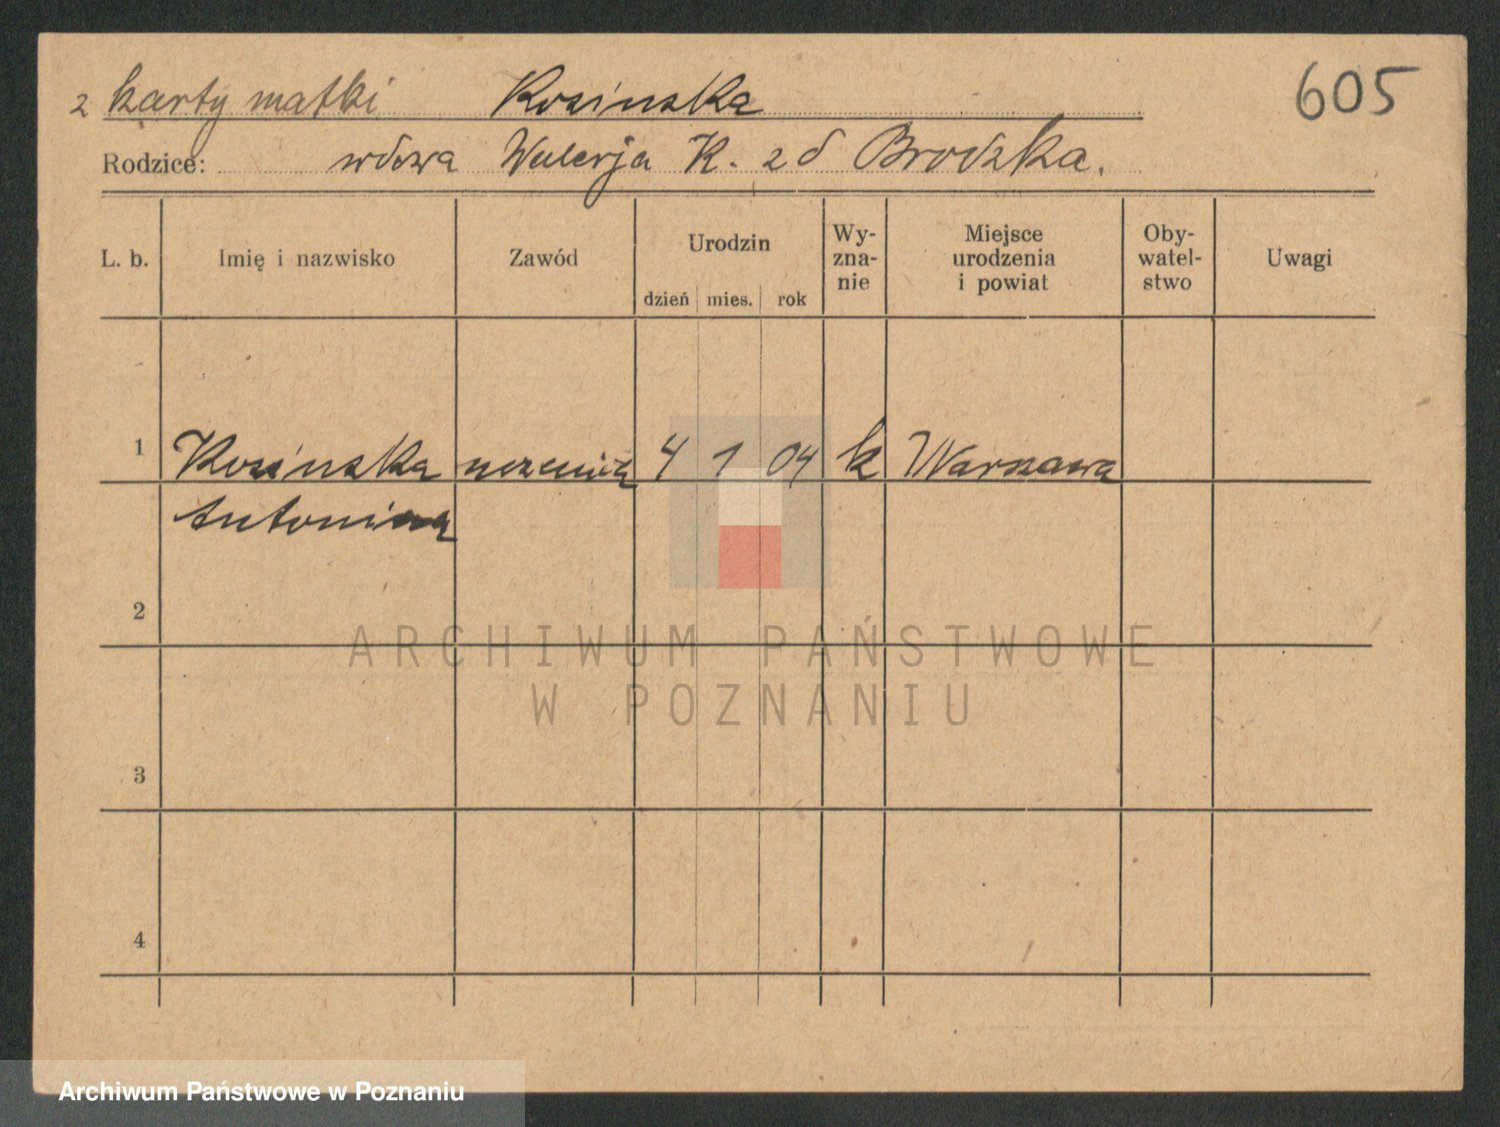 z karty matki Kosinska 605
Rodzice: wdowa Walerja K. z d Brodzka.
L. b. Imię i nazwisko Zawód Urodzin dzień mies. rok Wy-
zna-
nie Miejsce
urodzenia
i powiat Oby-
watel-
stwo Uwagi
1 Kosinska uczenica 4 1 04 k Warszawa
Antonina
2
3
4
ARCHIWUM PAŃSTWOWE
W POZNANIU
Archiwum Państwowe w Poznaniu